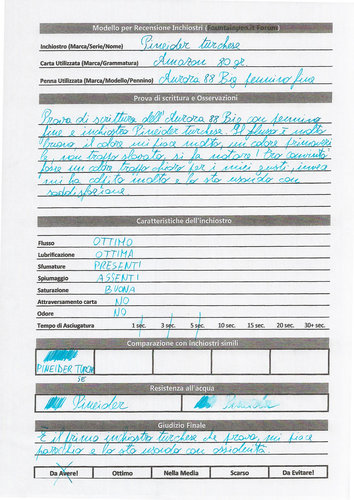 Modello per Recensione Inchiostri (Fountainpen.it Forum)
Inchiostro (Marca/Serie/Nome) Pineider turchese
Carta Utilizzata (Marca/Grammatura) Amazon 80 gr
Penna Utilizzata (Marca/Modello/Pennino) Aurora 88 Big pennino fine
Prova di scrittura e Osservazioni
Prova di scrittura dell'Aurora 88 Big con pennino
fine e inchiostro Pineider turchese. Il flusso è molto
buono, il colore mi piace molto, un colore primaverile
non troppo slavato, si fa notare! Ero convinto
fosse un colore troppo chiaro per i miei gusti, invece
mi ha colpito molto e lo sto usando con
soddisfazione
Caratteristiche dell'inchiostro
Flusso OTTIMO
Lubrificazione OTTIMA
Sfumature PRESENTI
Spiumaggio ASSENTI
Saturazione BUONA
Attraversamento carta NO
Odore NO
Tempo di Asciugatura 1 sec. 3 sec. 5 sec. 10 sec. 15 sec. 20 sec. 30+ sec.
Comparazione con inchiostri simili
PINEIDER TURCHE
SE
Resistenza all'acqua
Pineider Pineider
Giudizio Finale
È il primo inchiostro turchese che provo, mi piace
parecchio e lo sto usando con assiduità
Da Avere! Ottimo Nella Media Scarso Da Evitare!